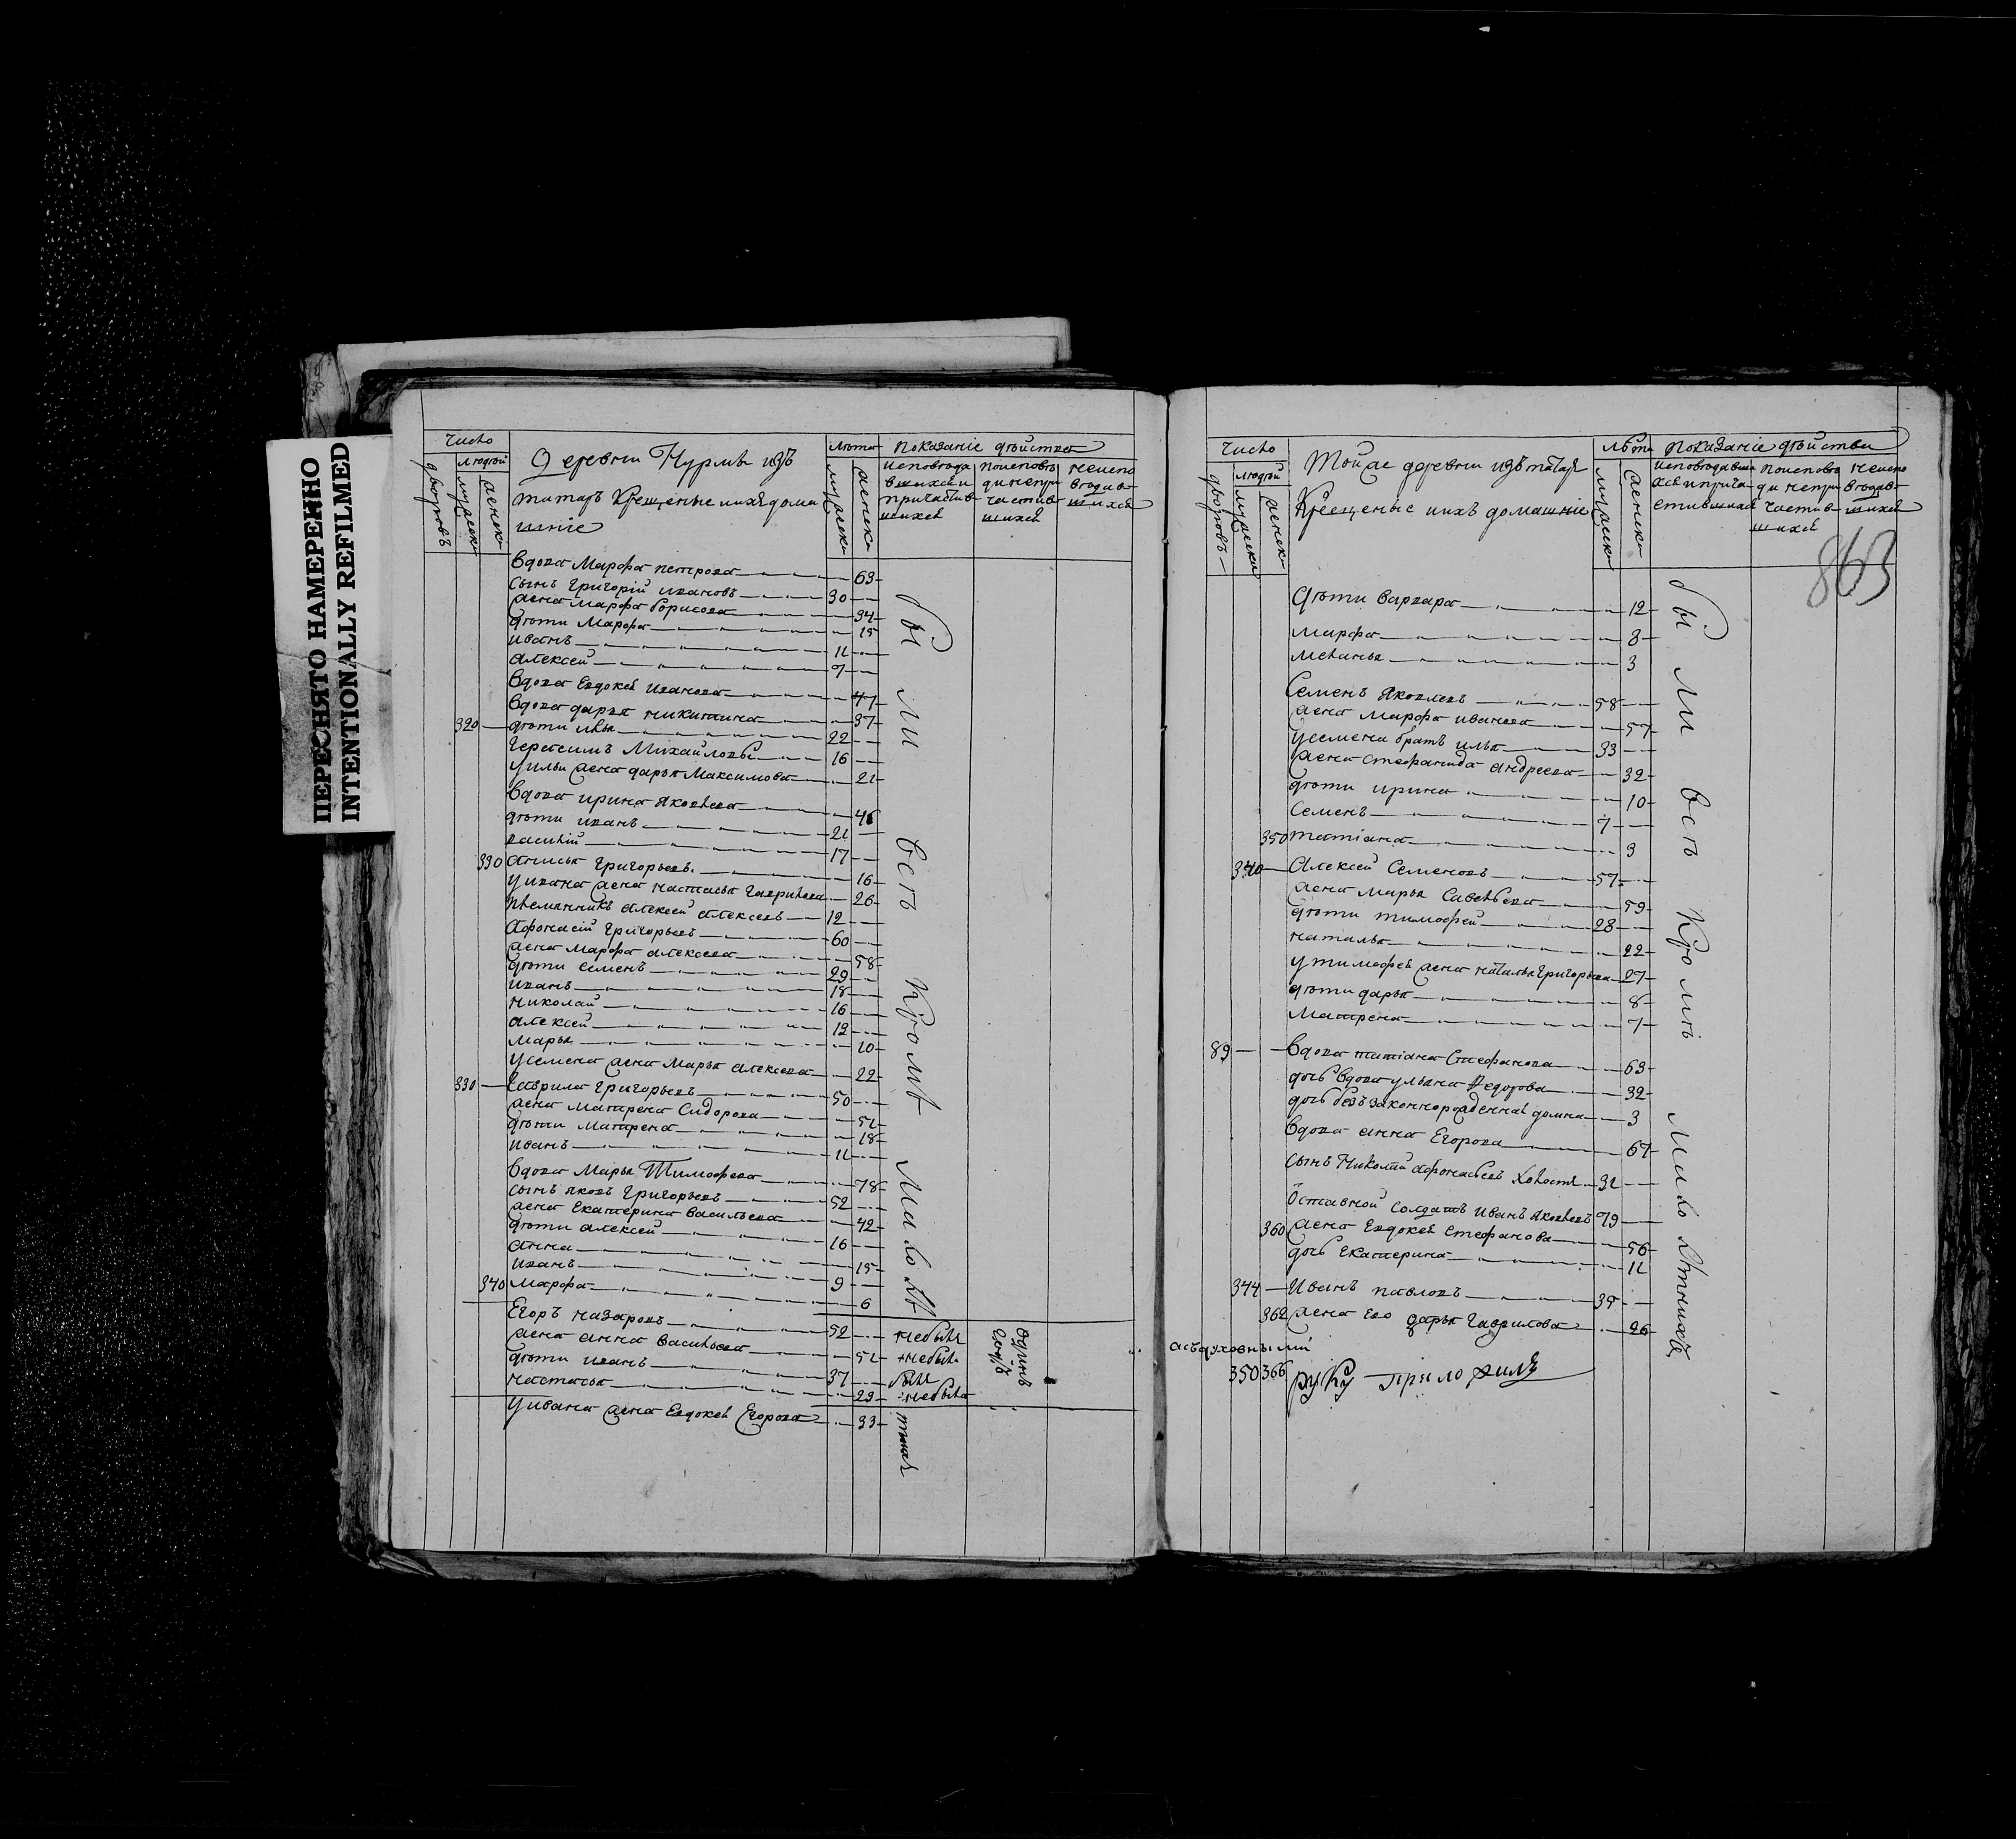 ПЕРЕСНЯТО НАМЕРЕННО
INTENTIONALLY REFILMED
Число
людей
дворовъ
мужеска
женска
Деревни Нурмы изъ
татаръ Крещеные ихъ дома
шніе
Лѣта
мужеска
женска
Показаніе дѣйства
исповѣда
вшихся и
причастив
шихся
по исповѣ
ди непри
частив
шихся
неиспо
вѣдав
шихся
вдова Марфа петрова 63
сынъ Григорій ивановъ 30
жена марфа борисова 34
дѣти Марфа 15
иванъ 11
алексей 7
вдова Евдокея иванова 47
вдова дарья никитина 37
320 дѣти илья 22
герасимъ Михайловы 16
у ильи жена дарья Максимова 21
вдова ирина яковлева 46
дѣти иванъ 21
василій 17
330 анисья Григорьевы 16
у ивана жена настасья гаврилова 26
племянникъ алексей алексеевъ 12
Афонасій Григорьевъ 60
жена марфа алексеева 58
дѣти семенъ 29
иванъ 18
николай 16
алексей 12
марья 10
у семена жена Марья алексеева 22
330 Гаврила Григорьевъ 50
жена Матрена Сидорова 51
дѣти Матрена 18
иванъ 11
вдова Марья Тимофеева 78
сынъ яковъ Григорьевъ 52
жена Екатерина васильева 42
дѣти алексей 16
анна 15
иванъ 9
340 марфа 6
Егоръ назаровъ 52 небылъ
жена анна васильева 51 небыла
дѣти иванъ 37 былъ
настасья 23 небыла
у ивана жена Евдокея Егорова 33
были всѣ кромѣ малолѣ
тныя
Число
людей
дворовъ
мужеска
женска
Той же деревни изъ татаръ
Крещеные ихъ домашніе
Лѣта
мужеска
женска
Показаніе дѣйства
исповѣдавши
хся и прича
стившихся
по исповѣ
ди непри
частив
шихся
неиспо
вѣдав
шихся
863
дѣти варвара 12
марфа 8
меланья 3
Семенъ яковлевъ 58
жена Марфа иванова 57
у семена братъ илья 33
жена стефанида андреева 32
дѣти ирина 10
семенъ 7
350 татіана 3
340 Алексей Семеновъ 57
жена марья Савельева 59
дѣти тимофей 28
наталья 22
у тимофея жена наталья Григорьева 27
дѣти дарья 8
Матрена 7
89 вдова татіана Стефанова 63
дочь вдова ульяна Федорова 32
дочь безъзаконнорожденная домна 3
вдова анна Егорова 67
сынъ Николай афонасьевъ холостъ 31
Отставной солдатъ Иванъ яковлевъ 79
360 жена Евдокея стефанова 56
дочь Екатерина 11
344 Иванъ павловъ 35
362 жена Ево дарья Гаврилова 26
были всѣ кромѣ малолѣтнихъ
350 366 руку приложилъ